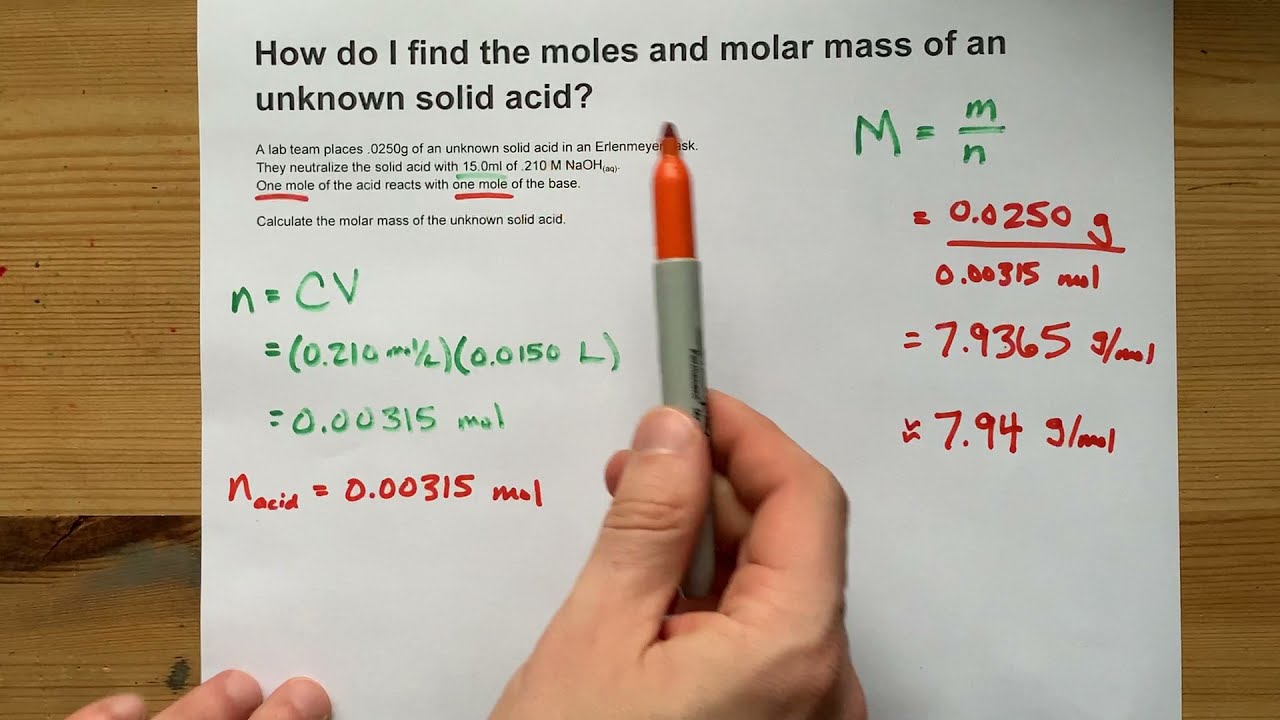 How do I find the moles and molar mass of an
unknown solid acid?
A lab team places .0250g of an unknown solid acid in an Erlenmeyer ask.
They neutralize the solid acid with 15.0ml of .210 M NaOH(aq).
One mole of the acid reacts with one mole of the base.
Calculate the molar mass of the unknown solid acid.
n = CV
= (0.210 mol/L)(0.0150 L)
= 0.00315 mol
n acid = 0.00315 mol
M = m/n
= 0.0250 g
0.00315 mol
= 7.9365 g/mol
≈ 7.94 g/mol